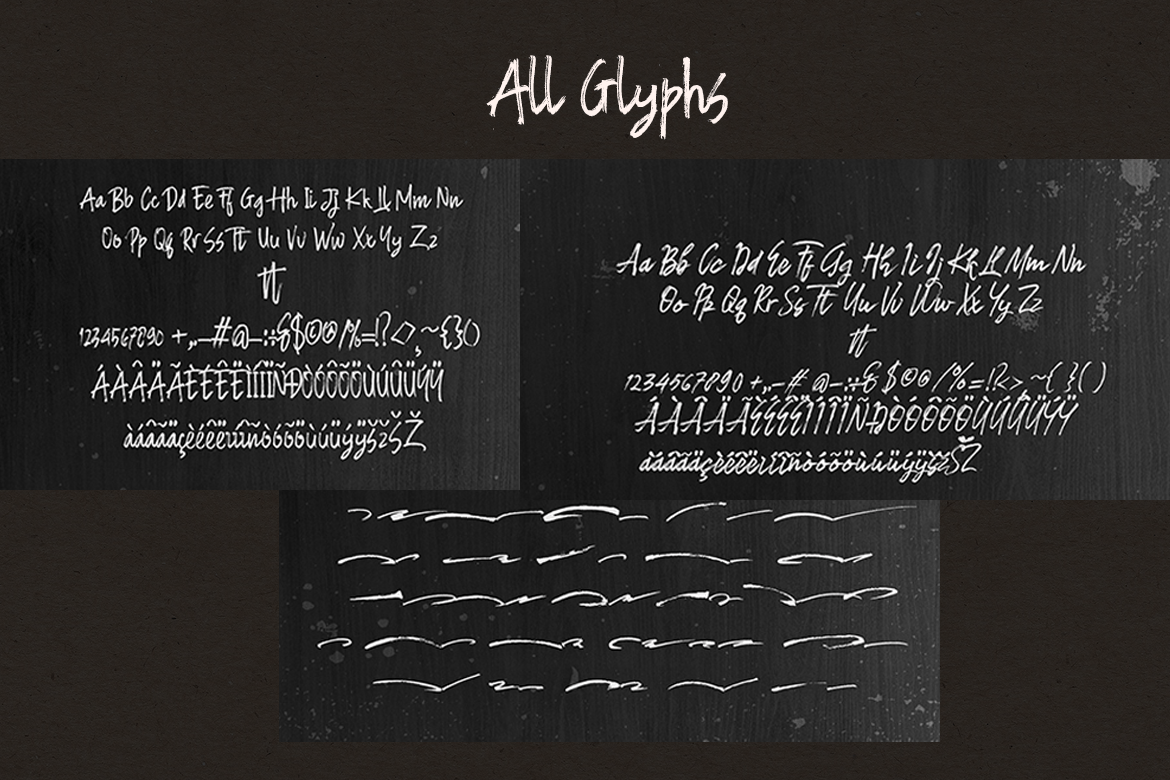 All Glyphs
Aa Bb Cc Dd Ee Ff Gg Hh Ii Jj Kk Ll Mm Nn
Oo Pp Qq Rr Ss Tt Uu Vv Ww Xx Yy Zz
tt
1234567890 +,.–#@–:;&$©®/%=!?<>¸~{}()
ÁÀÂÄÃÈÉÊËÌÍÎÏÑĐÒÓÔÕÖÙÚÛÜÝŸ
àáâãäçèéêëìíîïñòóôõöùúûüýÿšžŠŽ
Aa Bb Cc Dd Ee Ff Gg Hh Ii Jj Kk Ll Mm Nn
Oo Pp Qq Rr Ss Tt Uu Vv Ww Xx Yy Zz
tt
1234567890 +,.–# @–:;& $©®/%=!?<>¸~{ }( )